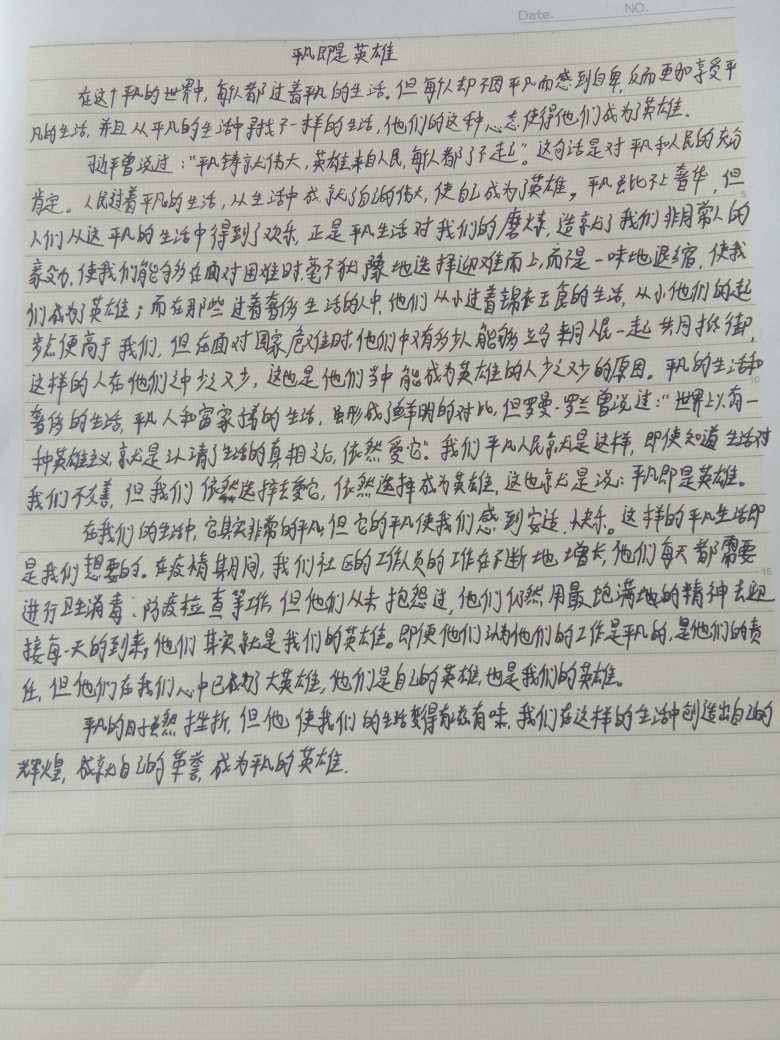 Date. NO.
平凡即是英雄
在这个平凡的世界中，每人都过着平凡的生活。但每人却不因平凡而感到自卑，反而更加享受平
凡的生活，并且从平凡的生活中寻找不一样的生活，他们的这种心态使得他们成为了英雄．
习近平曾说过："平凡铸就伟大，英雄来自人民，每人都了不起"。这句话是对平凡和人民的充分
肯定。人民过着平凡的生活，从生活中成就了自己的伟大，使自己成为了英雄。平凡虽比不上奢华，但
人们从这平凡的生活中得到了欢乐，正是平凡生活对我们的磨炼，造就了我们非同常人的
毅力，使我们能够在面对困难时毫不犹豫地选择迎难而上，而不是一味地退缩，使我
们成为英雄；而在那些过着奢侈生活的人中，他们从小过着锦衣玉食的生活，从小他们的起
步点便高于我们，但在面对国家危难时，他们中又有多少人能够与人民一起共同抵御，
这样的人在他们之中少之又少，这也是他们当中能成为英雄的人少之又少的原因。平凡的生活和
奢侈的生活，平凡人和富家的生活，虽形成了鲜明的对比，但罗曼·罗兰曾说过："世界上只有一
种英雄主义，就是认清了生活的真相之后，依然爱它"。我们平凡人民就是这样，即使知道生活对
我们不友善，但我们依然选择去爱它，依然选择成为英雄，这也就是说：平凡即是英雄。
在我们的生活中，它其实非常的平凡，但它的平凡使我们感到安适、快乐。这样的平凡生活即
是我们想要的。在疫情期间，我们社区的工作人员的工作在不断地增长，他们每天都需要
进行卫生消毒、防疫检查等工作，但他们从未抱怨过，他们仍然用最饱满地的精神去迎
接每一天的到来，他们其实就是我们的英雄。即便他们认为他们的工作是平凡的，是他们的责
任，但他们在我们心中已成为了大英雄，他们是自己的英雄，也是我们的英雄。
平凡的日子虽然挫折，但他使我们的生活变得有滋有味，我们在这样的生活中创造出自己的
辉煌，成就自己的荣誉，成为平凡的英雄．